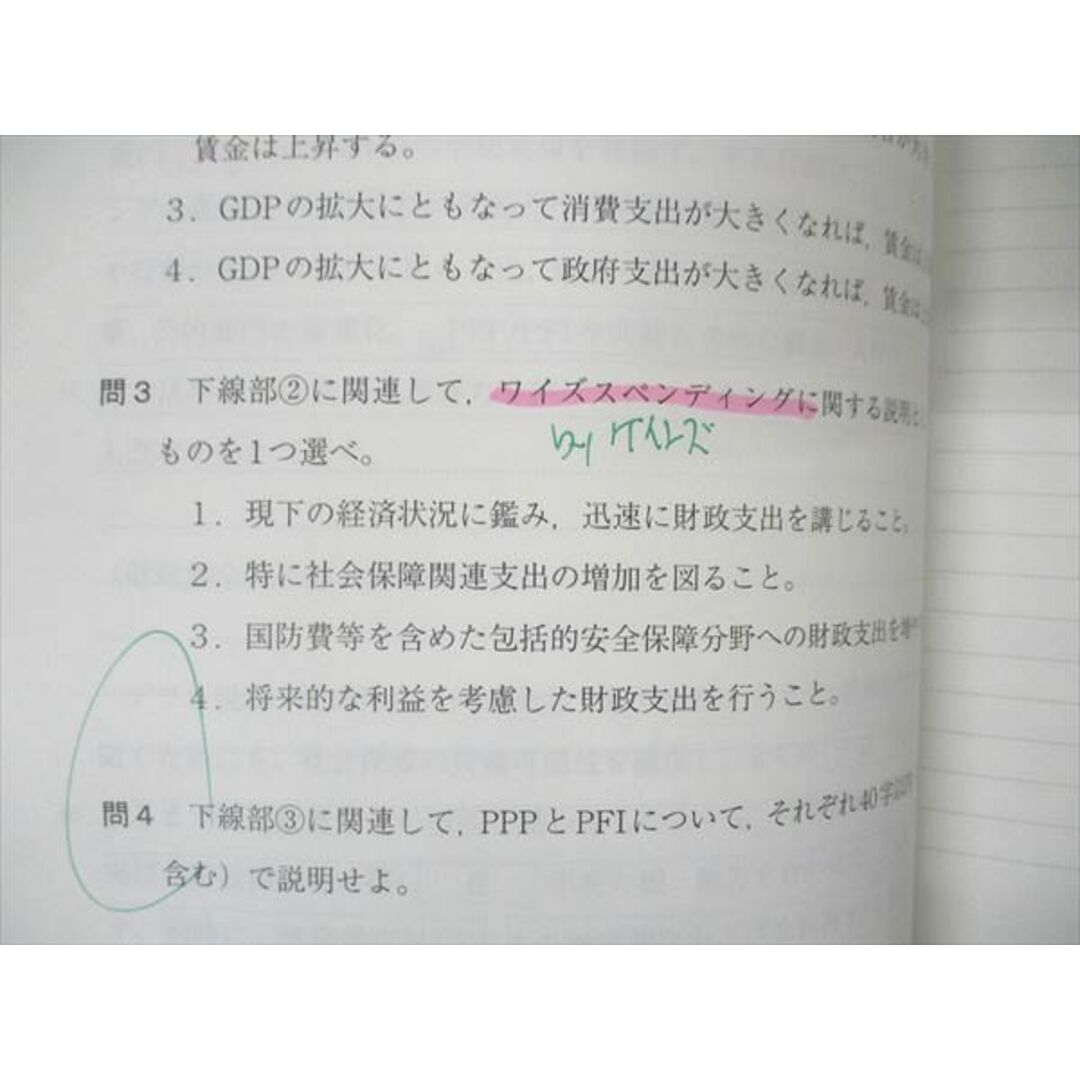 賃金は上昇する。
3．GDPの拡大にともなって消費支出が大きくなれば，賃金は
4．GDPの拡大にともなって政府支出が大きくなれば，賃金は
問3 下線部②に関連して，ワイズスペンディングに関する説明と
by ケインズ
ものを1つ選べ。
1．現下の経済状況に鑑み，迅速に財政支出を講じること。
2．特に社会保障関連支出の増加を図ること。
3．国防費等を含めた包括的安全保障分野への財政支出を増や
4．将来的な利益を考慮した財政支出を行うこと。
問4 下線部③に関連して，PPPとPFIについて，それぞれ40字以内
含む）で説明せよ。